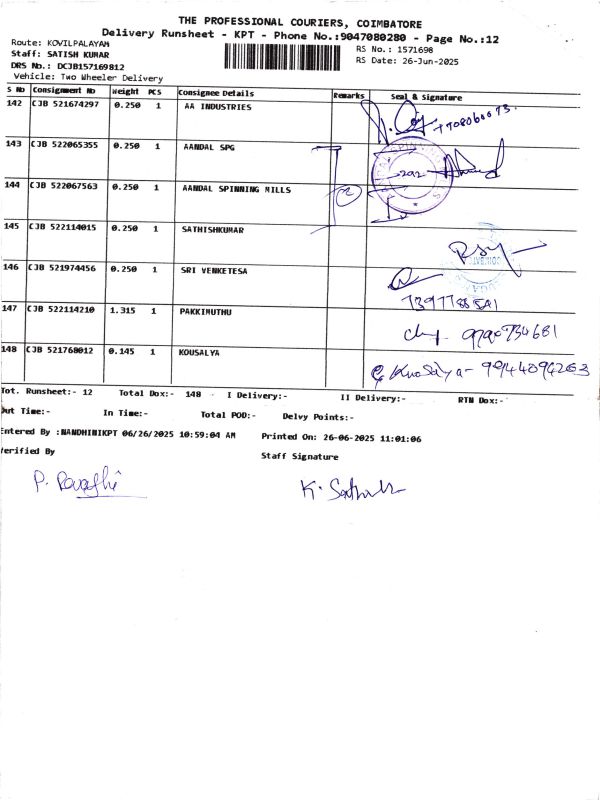 THE PROFESSIONAL COURIERS, COIMBATORE
Delivery Runsheet - KPT - Phone No.:9047080280 - Page No.:12
Route: KOVILPALAYAM
Staff: SATISH KUMAR
DRS No.: DCJB157169812
Vehicle: Two Wheeler Delivery
RS No.: 1571698
RS Date: 26-Jun-2025
S No Consignment No Weight PCS Consignee Details Remarks Seal & Signature
142 CJB 521674297 0.250 1 AA INDUSTRIES
143 CJB 522065355 0.250 1 AANDAL SPG
144 CJB 522067563 0.250 1 AANDAL SPINNING MILLS 2
145 CJB 522114015 0.250 1 SATHISHKUMAR
146 CJB 521974456 0.250 1 SRI VENKETESA
147 CJB 522114210 1.315 1 PAKKIMUTHU
148 CJB 521768012 0.145 1 KOUSALYA
Tot. Runsheet:- 12 Total Dox:- 148 I Delivery:- II Delivery:- RTN Dox:-
Out Time:- In Time:- Total POD:- Delvy Points:-
Entered By :NANDHINIKPT 06/26/2025 10:59:04 AM Printed On: 26-06-2025 11:01:06
Verified By Staff Signature